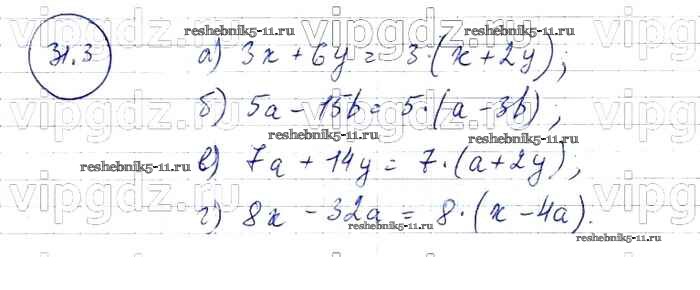 31.3
а) 3x + 6y = 3·(x + 2y);
б) 5a - 15b = 5·(a - 3b);
в) 7a + 14y = 7·(a + 2y);
г) 8x - 32a = 8·(x - 4a).
reshebnik5-11.ru
reshebnik5-11.ru
reshebnik5-11.ru
reshebnik5-11.ru
reshebnik5-11.ru
vipgdz.ru
vipgdz.ru
vipgdz.ru
vipgdz.ru
vipgdz.ru
vipgdz.ru